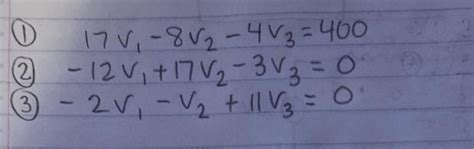 ① 17V₁ - 8V₂ - 4V₃ = 400
② -12V₁ + 17V₂ - 3V₃ = 0
③ -2V₁ - V₂ + 11V₃ = 0